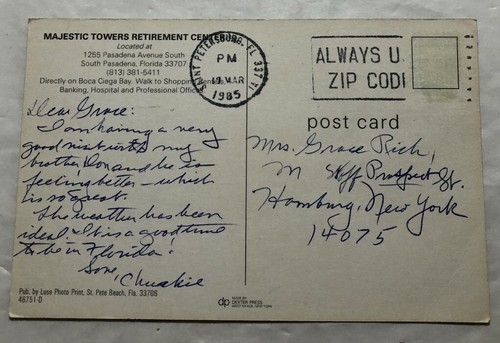 MAJESTIC TOWERS RETIREMENT CEN
Located at
1255 Pasadena Avenue South
South Pasadena, Florida 33707
(813) 381-5411
Directly on Boca Ciega Bay. Walk to Shopping Cent
Banking, Hospital and Professional Offic
SAINT PETERSBURG, FL 337
PM
19 MAR
1985
ALWAYS U
ZIP CODE
post card
Dear Grace:
I am having a very
good visit with my
brother Don and he is
feeling better - which
is so great.
The weather has been
ideal. It is a good time
to be in Florida!
Love,
Mrs. Grace Rich,
Prospect St.
Hamburg, New York
14075
Pub. by Luse Photo Print, St. Pete Beach, Fla. 33706
46751-D
dp
MADE BY
DEXTER PRESS
WEST NYACK, NEW YORK